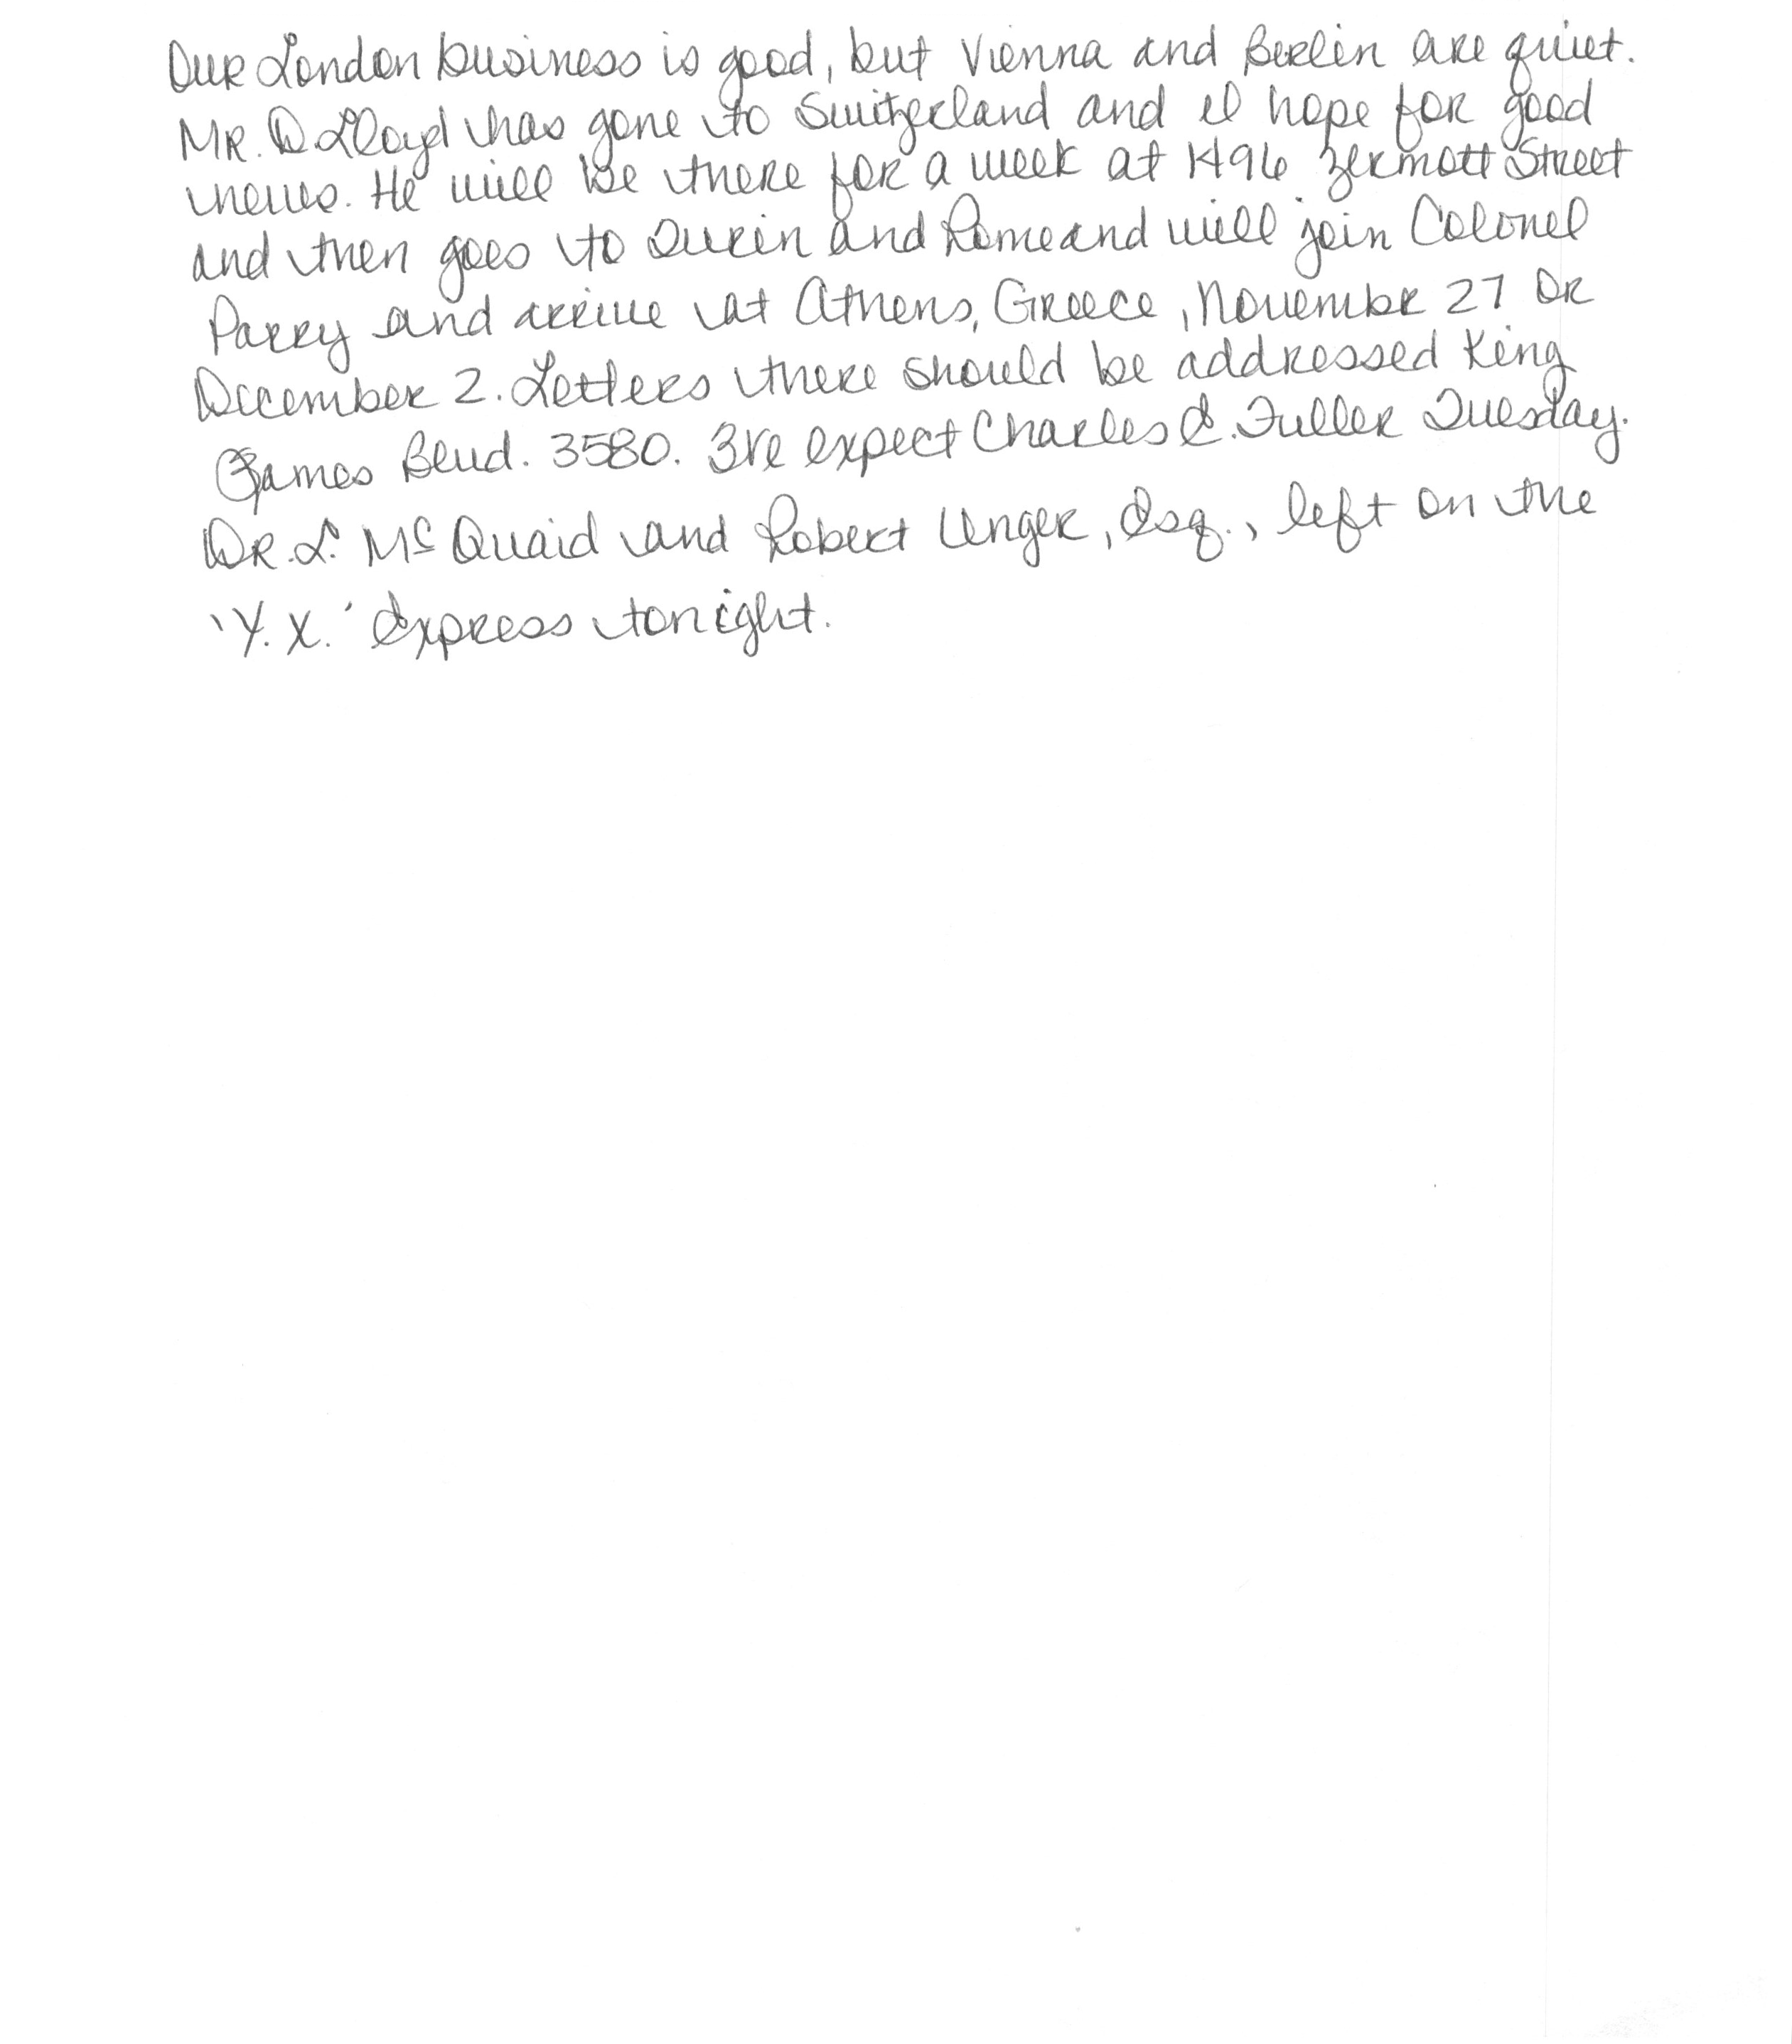 Our London business is good, but Vienna and Berlin are quiet.
Mr. D. Lloyd has gone to Switzerland and I hope for good
news. He will be there for a week at 1496 Zermott Street
and then goes to Turin and Rome and will join Colonel
Parry and arrive at Athens, Greece, November 27 or
December 2. Letters there should be addressed King
James Blvd. 3580. We expect Charles E. Fuller Tuesday.
Dr. L. McQuaid and Robert Unger, Esq., left on the
'Y.X.' Express tonight.